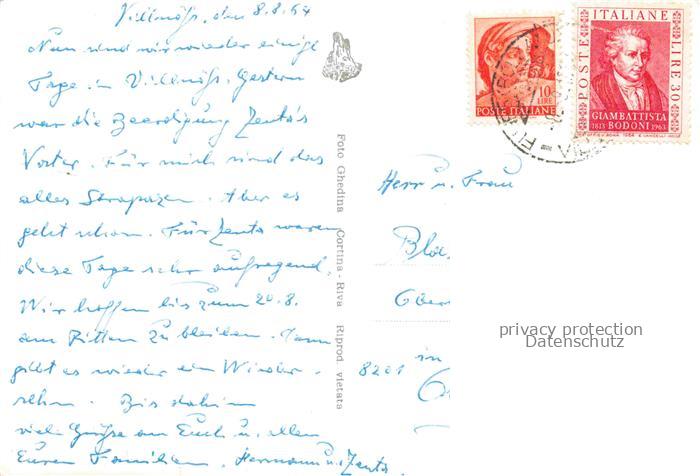 Villnöss, den 8.8.64
Nun sind wir wieder einige
Tage in Villnöss. Gestern
war die Beerdigung Zenta's
Vater. Für mich sind das
alles Strapazen. Aber es
geht schon. Für Zenta waren
diese Tage sehr aufregend.
Wir hoffen bis zum 20.8.
am Ritten zu bleiben. Dann
gibt es wieder ein Wieder-
sehn. Bis dahin
viele Grüße an Euch u. allen
Euren Familien. Hermann u. Zenta
Foto Ghedina Cortina-Riva Riprod vietata
10
LIRE
POSTE ITALIANE
ITALIANE
POSTE
LIRE 30
GIAMBATTISTA
1813 BODONI 1963
Herr u. Frau
Ober
8201 in
privacy protection
Datenschutz